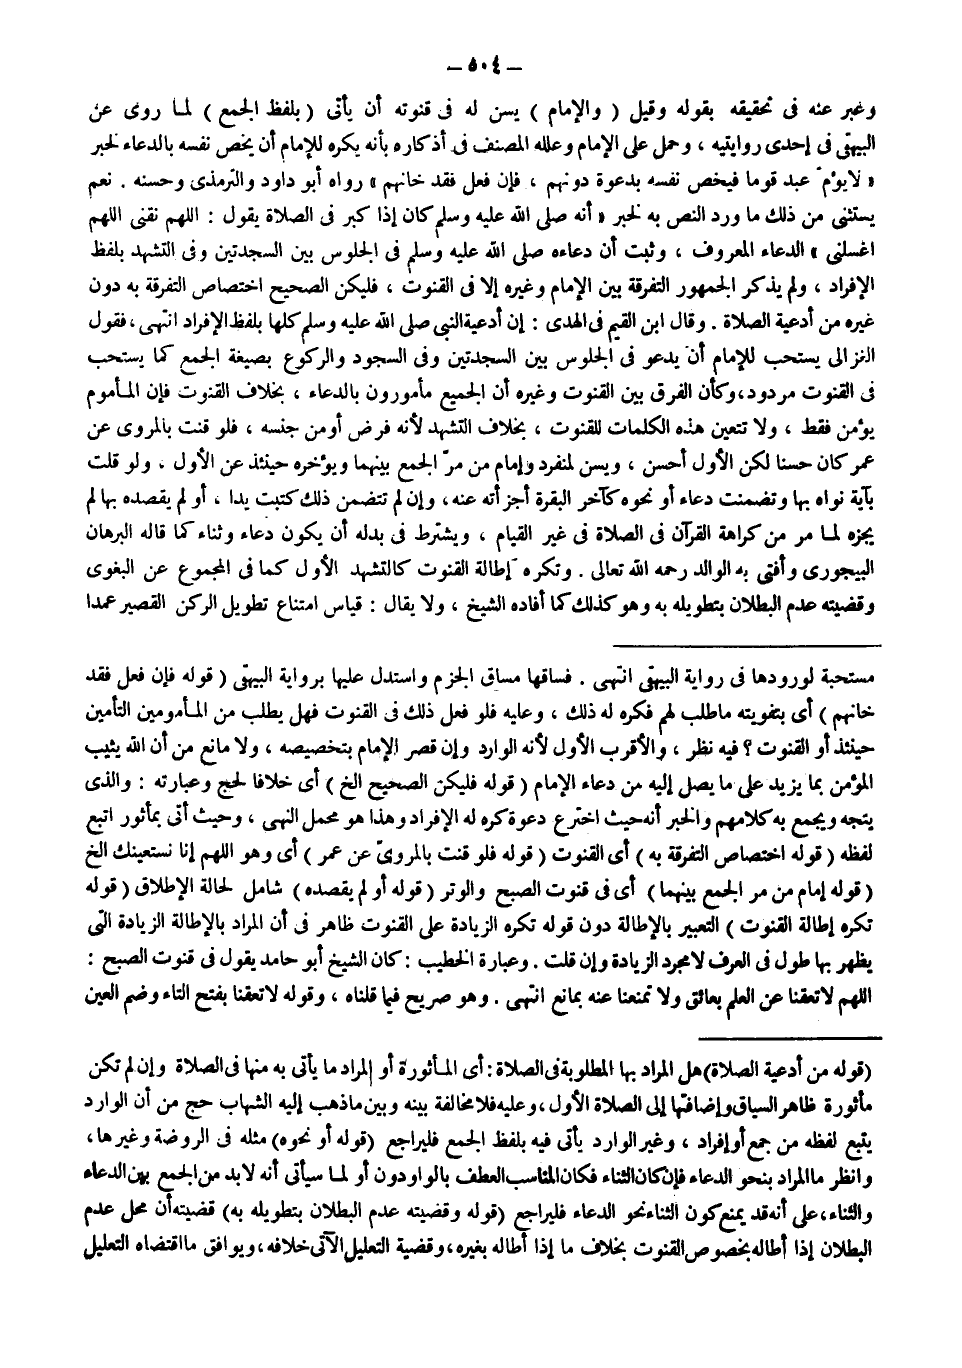 — ٥٠٤ —
وغبر عنه فى تحقيقه بقوله وقيل ( والإمام ) يسن له فى قنوته أن يأتى ( بلفظ الجمع ) لما روى عن
البيهقى فى إحدى روايتيه ، وحمل على الإمام وعلله المصنف فى أذكاره بأنه يكره للإمام أن يخص نفسه بالدعاء لخبر
« لايؤم عبد قوما فيخص نفسه بدعوة دونهم ، فإن فعل فقد خانهم » رواه أبو داود والترمذى وحسنه . نعم
يستثنى من ذلك ما ورد النص به لخبر « أنه صلى الله عليه وسلم كان إذا كبر فى الصلاة يقول : اللهم نقنى اللهم
اغسلنى » الدعاء المعروف ، وثبت أن دعاءه صلى الله عليه وسلم فى الجلوس بين السجدتين وفى التشهد بلفظ
الإفراد ، ولم يذكر الجمهور التفرقة بين الإمام وغيره إلا فى القنوت ، فليكن الصحيح اختصاص التفرقة به دون
غيره من أدعية الصلاة . وقال ابن القيم فى الهدى : إن أدعية النبى صلى الله عليه وسلم كلها بلفظ الإفراد انتهى ، فقول
الغزالى يستحب للإمام أن يدعو فى الجلوس بين السجدتين وفى السجود والركوع بصيغة الجمع كما يستحب
فى القنوت مردود ، وكأن الفرق بين القنوت وغيره أن الجميع مأمورون بالدعاء ، بخلاف القنوت فإن المأموم
يؤمن فقط ، ولا تتعين هذه الكلمات للقنوت ، بخلاف التشهد لأنه فرض أومن جنسه ، فلو قنت بالمروى عن
عمر كان حسنا لكن الأول أحسن ، ويسن لمنفرد وإمام من مرّ الجمع بينهما ويؤخره حينئذ عن الأول ، ولو قلت
بآية نواه بها وتضمنت دعاء أو نحوه كآخر البقرة أجزأته عنه ، وإن لم تتضمن ذلك كتبت يدا ، أو لم يقصده بها لم
يجزه لما مر من كراهة القرآن فى الصلاة فى غير القيام ، ويشترط فى بدله أن يكون دعاء وثناء كما قاله البرهان
البيجورى وأفتى به الوالد رحمه الله تعالى . وتكره إطالة القنوت كالتشهد الأول كما فى المجموع عن البغوى
وقضيته عدم البطلان بتطويله به وهو كذلك كما أفاده الشيخ ، ولا يقال : قياس امتناع تطويل الركن القصير عمدا
مستحبة لورودها فى رواية البيهقى انتهى . فساقها مساق الجزم واستدل عليها برواية البيهقى ( قوله فإن فعل فقد
خانهم ) أى بتفويته ماطلب لهم فكره له ذلك ، وعليه فلو فعل ذلك فى القنوت فهل يطلب من المأمومين التأمين
حينئذ أو القنوت ؟ فيه نظر ، والأقرب الأول لأنه الوارد وإن قصر الإمام بتخصيصه ، ولا مانع من أن الله يثيب
المؤمن بما يزيد على ما يصل إليه من دعاء الإمام ( قوله فليكن الصحيح الخ ) أى خلافا لحج وعبارته : والذى
يتجه ويجمع به كلامهم والخبر أنه حيث اخترع دعوة كره له الإفراد وهذا هو محمل النهى ، وحيث أتى بمأثور اتبع
لفظه ( قوله اختصاص التفرقة به ) أى القنوت ( قوله فلو قنت بالمروىّ عن عمر ) أى وهو اللهم إنا نستعينك الخ
( قوله إمام من مر الجمع بينهما ) أى فى قنوت الصبح والوتر ( قوله أو لم يقصده ) شامل لحالة الإطلاق ( قوله
تكره إطالة القنوت ) التعبير بالإطالة دون قوله تكره الزيادة على القنوت ظاهر فى أن المراد بالإطالة الزيادة التى
يظهر بها طول فى العرف لامجرد الزيادة وإن قلت . وعبارة الخطيب : كان الشيخ أبو حامد يقول فى قنوت الصبح :
اللهم لاتعقنا عن العلم بعائق ولا تمنعنا عنه بمانع انتهى . وهو صريح فيما قلناه ، وقوله لاتعقنا بفتح التاء وضم العين
( قوله من أدعية الصلاة ) هل المراد بها المطلوبة فى الصلاة : أى المأثورة أو المراد ما يأتى به منها فى الصلاة وإن لم تكن
مأثورة ظاهر السياق وإضافتها إلى الصلاة الأول ، وعليه فلا مخالفة بينه وبين ماذهب إليه الشهاب حج من أن الوارد
يتبع لفظه من جمع أو إفراد ، وغير الوارد يأتى فيه بلفظ الجمع فليراجع ( قوله أو نحوه ) مثله فى الروضة وغيرها ،
وانظر ما المراد بنحو الدعاء فإن كان الثناء فكان المناسب العطف بالواو دون أو لما سيأتى أنه لابد من الجمع بين الدعاء
والثناء ، على أنه قد يمنع كون الثناء نحو الدعاء فليراجع ( قوله وقضيته عدم البطلان بتطويله به ) قضيته أن محل عدم
البطلان إذا أطاله بخصوص القنوت بخلاف ما إذا أطاله بغيره ، وقضية التعليل الآتى خلافه ، ويوافق ما اقتضاه التعليل